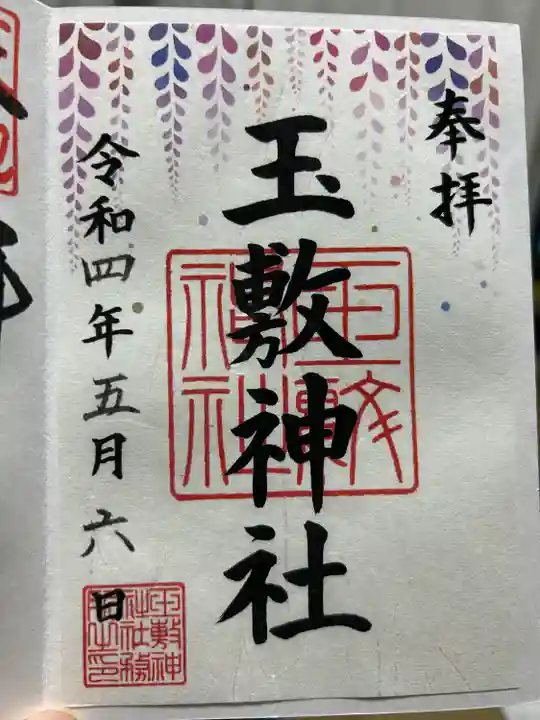 奉拝
玉敷神社
令和四年五月六日
玉敷神社
玉敷神社社務所之印